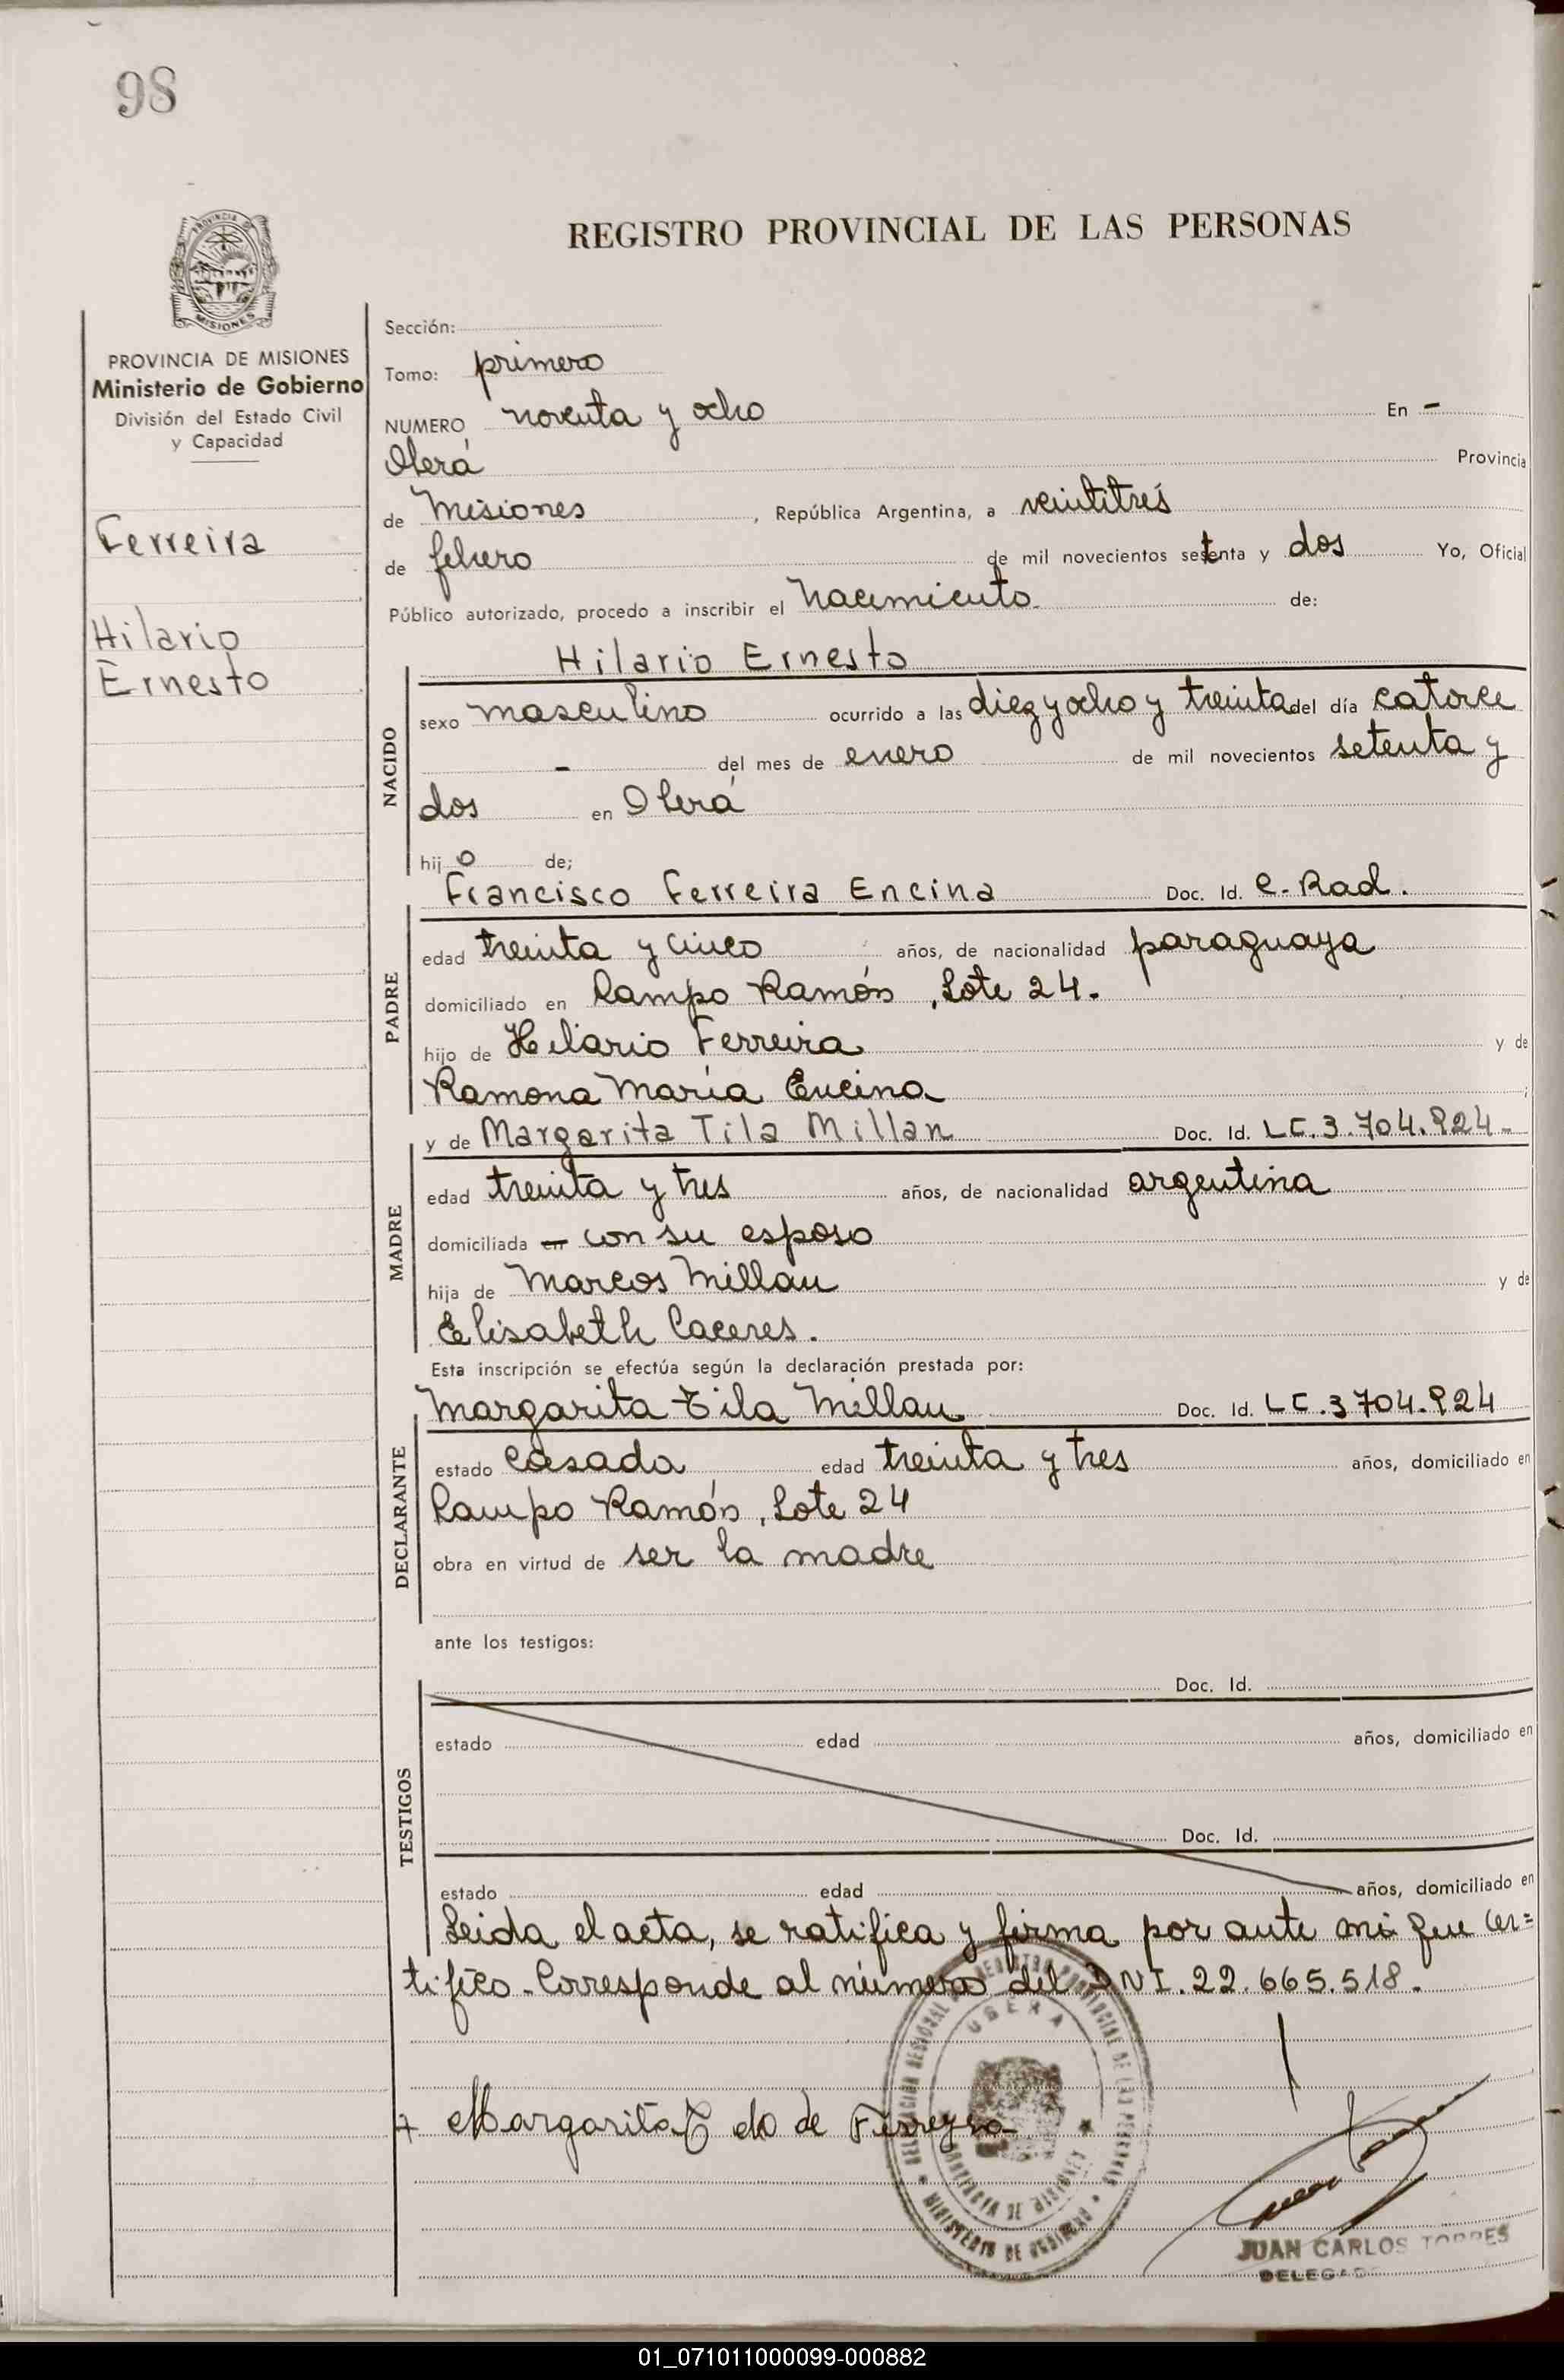 98
REGISTRO PROVINCIAL DE LAS PERSONAS
PROVINCIA
MISIONES
PROVINCIA DE MISIONES
Ministerio de Gobierno
División del Estado Civil
y Capacidad
Ferreira
Hilario
Ernesto
Sección:
Tomo: primero
NUMERO noventa y ocho En -
Oberá Provincia
de Misiones, República Argentina, a veintitrés
de febrero de mil novecientos setenta y dos Yo, Oficial
Público autorizado, procedo a inscribir el nacimiento de:
Hilario Ernesto
NACIDO
sexo masculino ocurrido a las diez y ocho y treinta del día catorce
- del mes de enero de mil novecientos setenta y
dos en Oberá
hijo de;
Francisco Ferreira Encina Doc. Id. C. Rad.
PADRE
edad treinta y cinco años, de nacionalidad paraguaya
domiciliado en Campo Ramón, Lote 24.
hijo de Hilario Ferreira y de
Ramona María Encina
y de Margarita Tila Millan Doc. Id. LC. 3.704.924-
MADRE
edad treinta y tres años, de nacionalidad argentina
domiciliada en con su esposo
hija de Marcos Millan y de
Elisabeth Caceres.
Esta inscripción se efectúa según la declaración prestada por:
Margarita Tila Millan Doc. Id. LC. 3704.924
DECLARANTE
estado casada edad treinta y tres años, domiciliado en
Campo Ramón, Lote 24
obra en virtud de ser la madre
ante los testigos:
Doc. Id.
TESTIGOS
estado edad años, domiciliado en
Doc. Id.
estado edad años, domiciliado en
Leida el acta, se ratifica y firma por ante mi que cer=
tifico. Corresponde al número del DNI. 22.665.518.
DELEGACION REGIONAL DEL REGISTRO PROVINCIAL DE LAS PERSONAS
OBERA
PROVINCIA DE MISIONES
MINISTERIO DE GOBIERNO
Margarita T de Ferreyra
JUAN CARLOS TORRES
DELEGADO
01_071011000099-000882